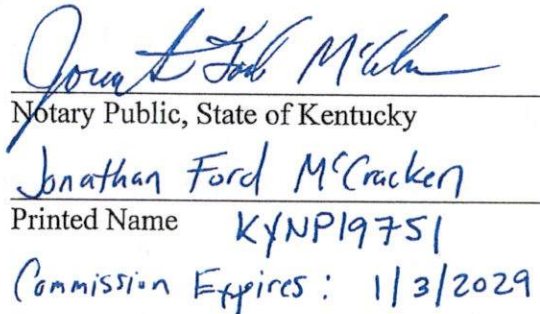 Notary Public, State of Kentucky
Jonathan Ford McCracken
Printed Name KYNP19751
Commission Expires: 1/3/2029